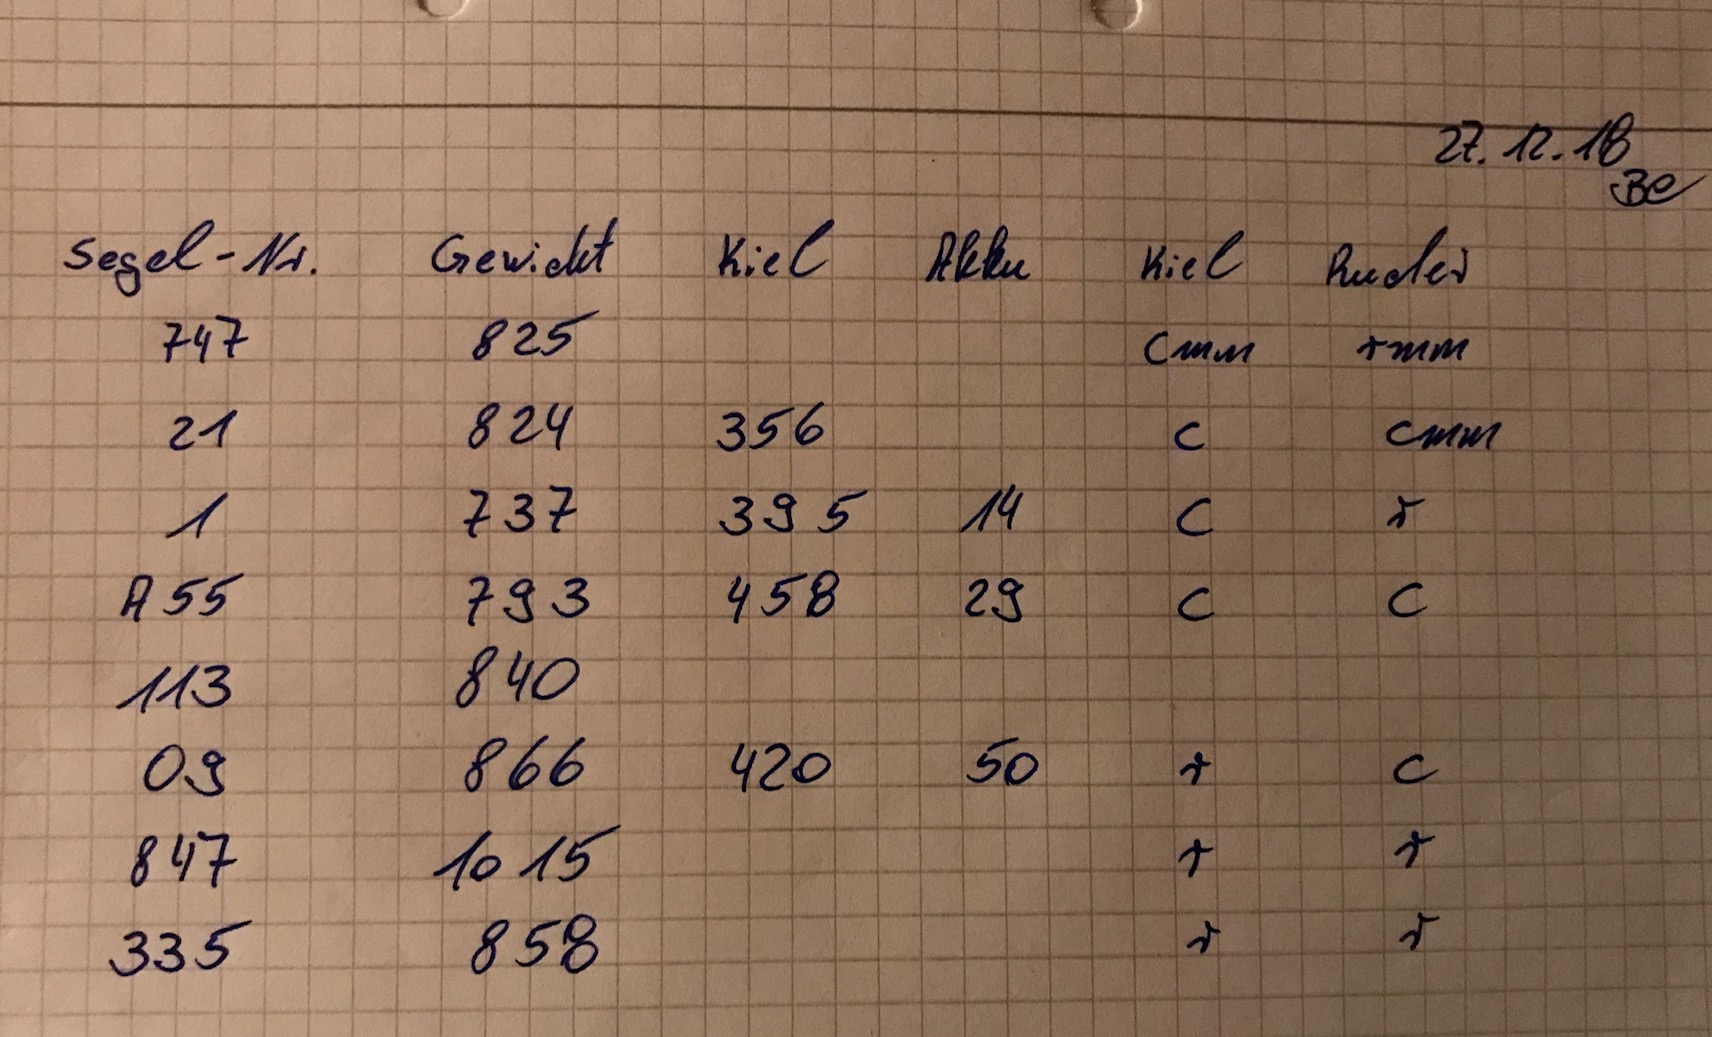 27.12.18
Be
Segel-Nr. Gewicht Kiel Akku Kiel Ruder
747 825 cmm rmm
21 824 356 c cmm
1 737 395 14 c r
A55 793 458 29 c c
113 840
09 866 420 50 r c
847 1015 r r
335 858 r r